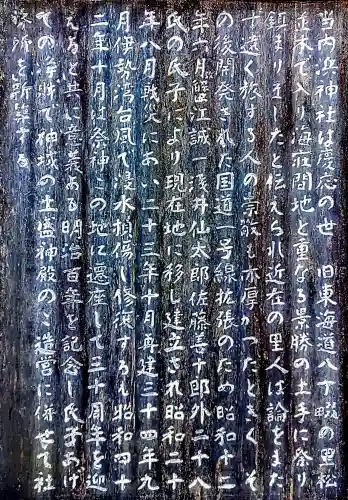 当内浜神社は慶応の世 旧東海道八丁畷の里松
並木で入り海荘間地と重なる景勝の土手に祭り
鎮まりましたと伝えられ近在の里人は論をまた
ず遠く旅する人の景敬も本厚かったときく その
の後開発された国道一号線拡張のため昭和十二
年一月蟹江誠一浅井仙太郎佐藤善十郎外二十八
氏の氏子により現在地に移し建立され昭和二十
年八月戦災にあい二十三年十月再建三十四年九
月伊勢湾台風で浸水損傷し修復するも昭和四十
二年十月は祭神この地に還座して三十周年を迎
えると共に意義ある明治百年を記念し氏子あげ
ての浄財で神域の土盛神殿のご造営に併せて社
務所を新築する